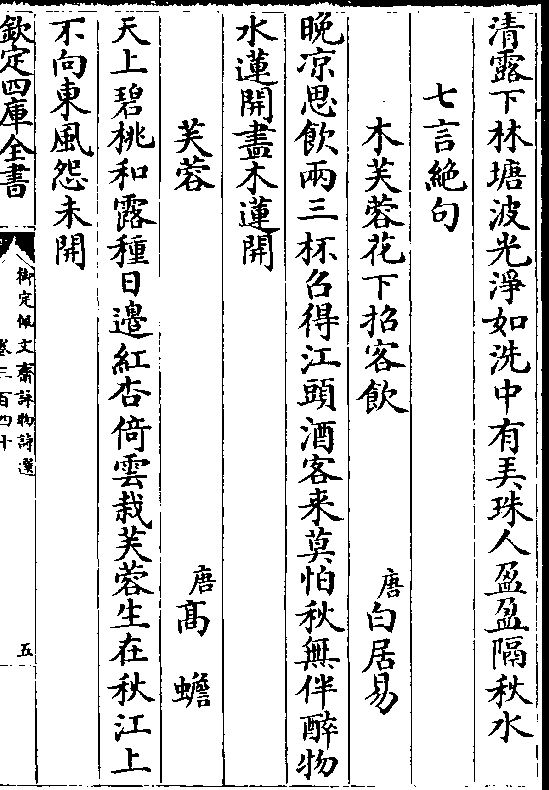 清露下林塘波光淨如洗中有美珠人盈盈隔秋水
七言絶句
木芙蓉花下招客飲 唐白居易
晚凉思飲兩三杯召得江頭酒客来莫怕秋無伴醉物
水蓮開盡木蓮開
芙蓉 唐高蟾
天上碧桃和露種日邉紅杏倚雲栽芙蓉生在秋江上
不向東風怨未開
欽定四庫全書
御定佩文齋詠物詩選
卷三百四十
五